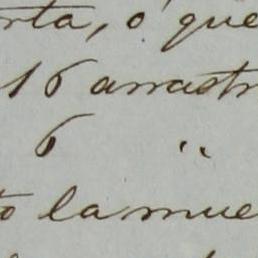 rta, ó que
16 arrastr
6 "
to la mue